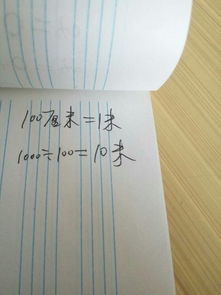 100厘米=1米
1000÷100=10米